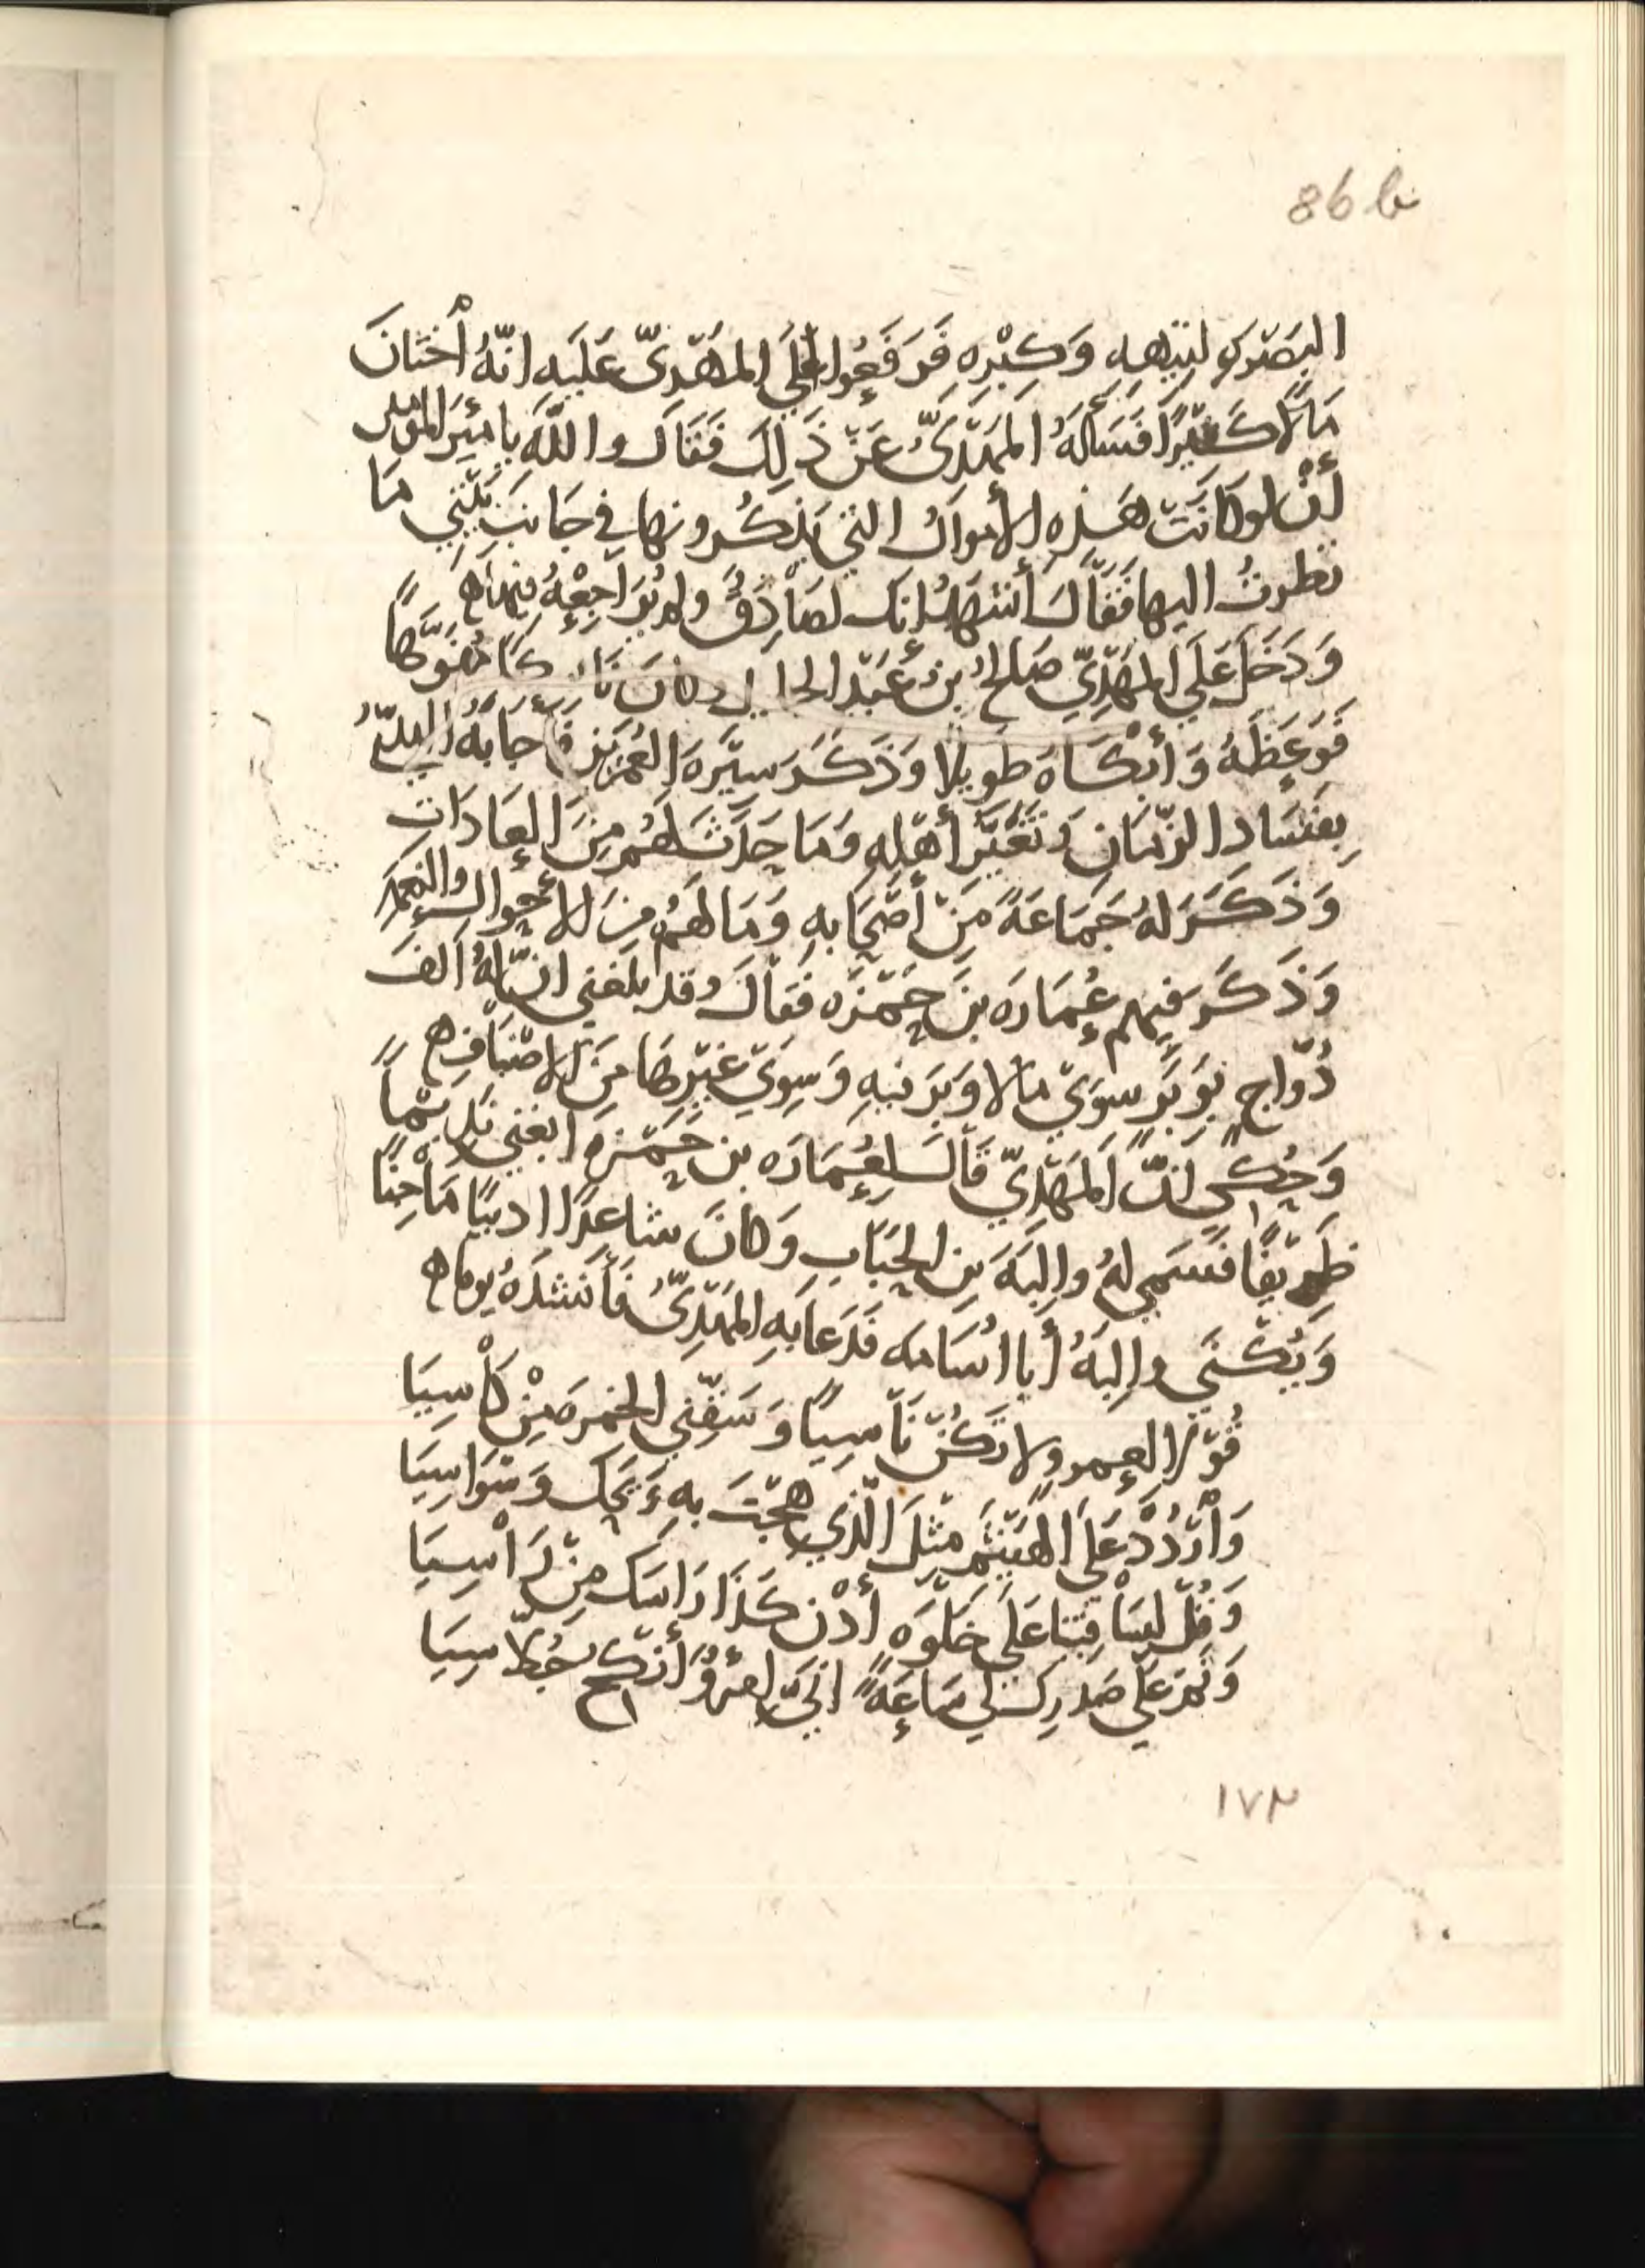 86 b
البَصْرِي لِتيهِهِ وَكِبْرِهِ فَرَفَعُوا إلَى المَهْدِىّ عَلَيهِ انّهُ أخْتَانَ
مَالًا كَثِيْرًا فَسَأَلَهُ المَهْدِىُّ عَنْ ذَلِكَ فَقَالَ واللّهِ يا أميرَ المؤمنين
أنْ لو كَانَتْ هَذِهِ الأموالُ التي يَذكُرُونَها في جَانبِ بَيْتِي مَا
نظرتُ اليها فَقَالَ أشْهَدُ إنك لصَادِقٌ ولم يُرَاجِعْهُ فيها ه
وَدَخَلَ عَلَي المَهْدِيّ صَالحُ بنُ عَبْدِ الجليل وكانَ نَاسِكًا مُفَوَّهًا
فَوَعَظَهُ وَأبْكَاهُ طَوِيلًا وَذَكَرَ سِيْرَةَ العُمَرَين فأجَابَهُ المهديُّ
بِفَسَادِ الزّمَانِ وتَغَيُّرِ أهْلِهِ وَمَا حَدَثَ لَهُم مِنَ العَادَاتِ
وَذَكَرَ لهُ جَمَاعَةً مِنْ أصْحَابِهِ وَمَا لَهُم مِنَ الأموال والنِعَمِ
وَذَكَرَ فِيهم عُمَارَة بنَ حَمْزَه فَقَالَ وقد بَلَغَني انّ لهُ ألفَ
دُوّاجٍ بِوَبَرٍ سِوَيْ مَا لَا وَبَرَ فيهِ وَسِوَيْ غَيْرِهَا مِنَ الاصْنَافِ ه
وَحُكِي أنّ المَهْدِيّ قَالَ لِعُمَارَه بن حَمْزَه ابغني نَدِيمًا
ظَرِيْفًا فَسَمّى لهُ والِبَةَ بنَ الحُبَابِ وَكَانَ شاعِرًا اديبًا مَاجِنًا
وَيُكْنَي والِبَهُ أبا اُسَامَه فَدَعَا بهِ المَهْدِىُّ فَأنشدَهُ يوما ه
قُوْلَا لِعمرو ولا تَكُنْ نَاسِيًا وَسَقِّني الخمرَ مِنْ كَأسِيَا
وَأرْدُدْ عَلَي الهَيْثَمِ مِثْلَ الّذِي هِجْتَ بِهِ وَيْحَكَ وَسْوَاسِيَا
وَقُلْ لِسَاقِيْنا عَلَي خَلْوَه أدْنِ كَذَا رَاسَكَ مِنْ رَاسِيَا
وَنَمْ عَلَي صَدرِكَ لِي سَاعَةً انِّي امرؤٌ أنكح جُلّاسِيَا
١٧٢